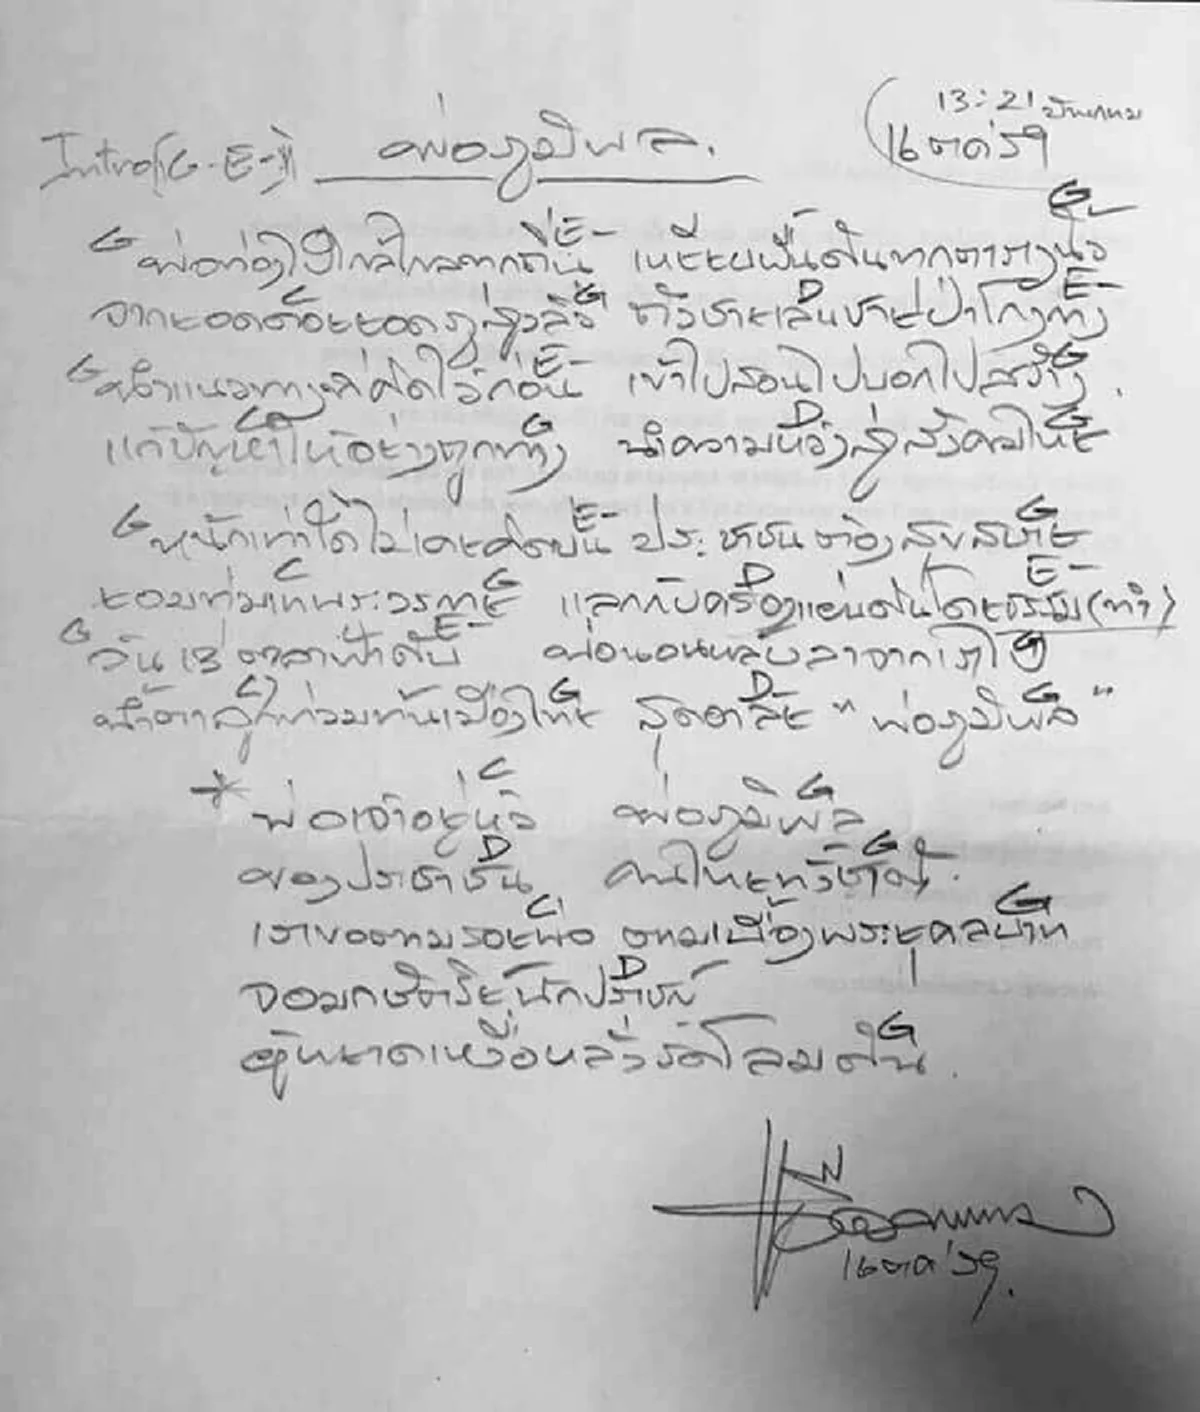 13:21
Intro(G-E-) พ่อภูมิพล.
G E- G
พ่อท่องไปใกล้ไกลทุกถิ่น เหยียบผืนดินทุกตารางนิ้ว
C G D E-
จากยอดดอยยอดภูสูงลิ่ว ถ้วชายเลนชายป่าโกงกาง
G E- G
นำแนวทางที่คิดไว้ก่อน เข้าไปสอนไปบอกไปสร้าง.
C G D G
แก้ปัญหาให้อย่างถูกทาง นำความหวังสู่สังคมไทย
G E- G
หนักเท่าใดไม่เคยคิดบ่น ประชาชนต้องสุขสบาย
C G D E-
ยอมทุ่มเทพระวรกาย แลกกับครองแผ่นดินโดยธรรม(ทำ)
G E- G
วันที่ 13 ตุลาฟ้าดับ พ่อนอนหลับลาจากเราไป
C G D G
น้ำตาลูกท่วมท้นเมืองไทย สุดอาลัย "พ่อภูมิพล"
C G
* พ่อเจ้าอยู่หัว พ่อภูมิพล
D G
ของประชาชน คนไทยทั้งชาติ.
C G
เราขอตามรอยพ่อ ตามเบื้องพระยุคลบาท
D
จอมกษัตริย์นักปราชญ์
G
ผู้หยาดเหงื่อหลั่งรดโลมดิน.